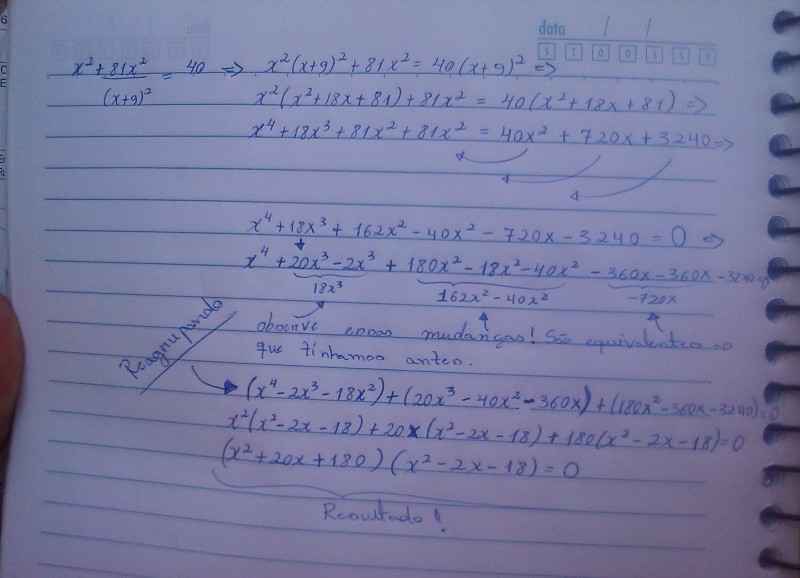 data / /
S T Q Q S S D
x² + 81x²/(x+9)² = 40 => x²(x+9)² + 81x² = 40(x+9)² =>
x²(x²+18x+81) + 81x² = 40(x²+18x+81) =>
x⁴+18x³+81x²+81x² = 40x² + 720x + 3240 =>
x⁴+18x³ + 162x² - 40x² - 720x - 3240 = 0 =>
x⁴ + 20x³ - 2x³ + 180x² - 18x² - 40x² - 360x - 360x - 3240 = 0
18x³ 162x² - 40x² - 720x
observe essas mudanças! São equivalentes ao
que tínhamos antes.
Reagrupando
(x⁴ - 2x³ - 18x²) + (20x³ - 40x² - 360x) + (180x² - 360x - 3240) = 0
x²(x² - 2x - 18) + 20x(x² - 2x - 18) + 180(x² - 2x - 18) = 0
(x² + 20x + 180)(x² - 2x - 18) = 0
Resultado!